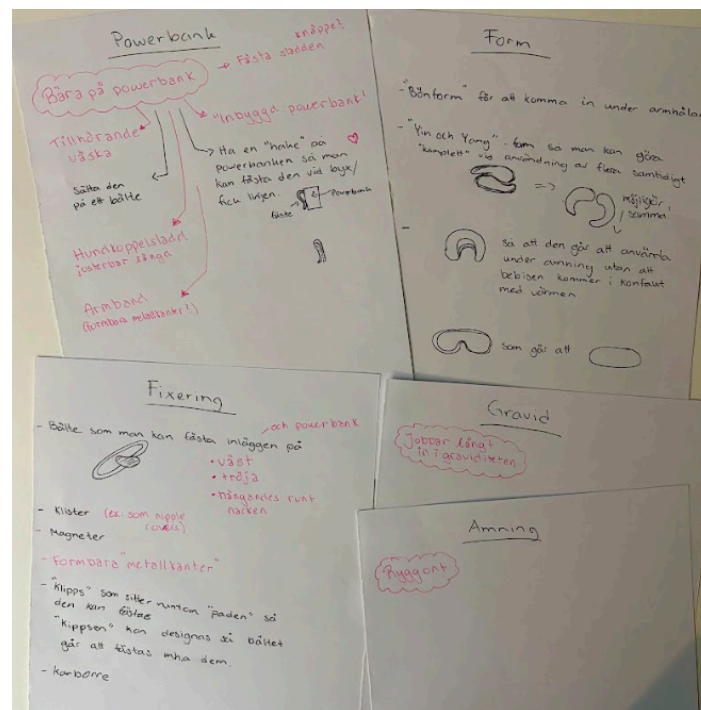 Powerbank
Bära på powerbank
knäppe?
Fästa sladden
"Inbyggd powerbank"
Tillhörande
väska
Sätta den
på ett bälte
Ha en "hake" på
powerbanken så man
kan fästa den vid byx/
fick linjen.
Powerbank
fäste
Hundkoppelsladd
justerbar längd
Armband
(formbara metallkanter?)
Form
- "Bönform" för att komma in under armhålan
- "Yin och Yang"-form så man kan göra
"komplett" vid användning av flera samtidigt
=>
möjligör
samma
-
så att den går att använda
under amning utan att
bebisen kommer i kontakt
med värmen
som går att
Fixering
- Bälte som man kan fästa inläggen på
och powerbank
• väst
• tröja
• hängandes runt
nacken
- Klister (ex. som nipple
covers)
- Magneter
- Formbara "metallkanter"
- "Klipps" som sitter runtom "paden" så
den kan fästas
"Klippsen" kan designas så bältet
går att fästas mha dem.
- Karborre
Gravid
Jobbar långt
in i graviditeten
Amning
Ryggont